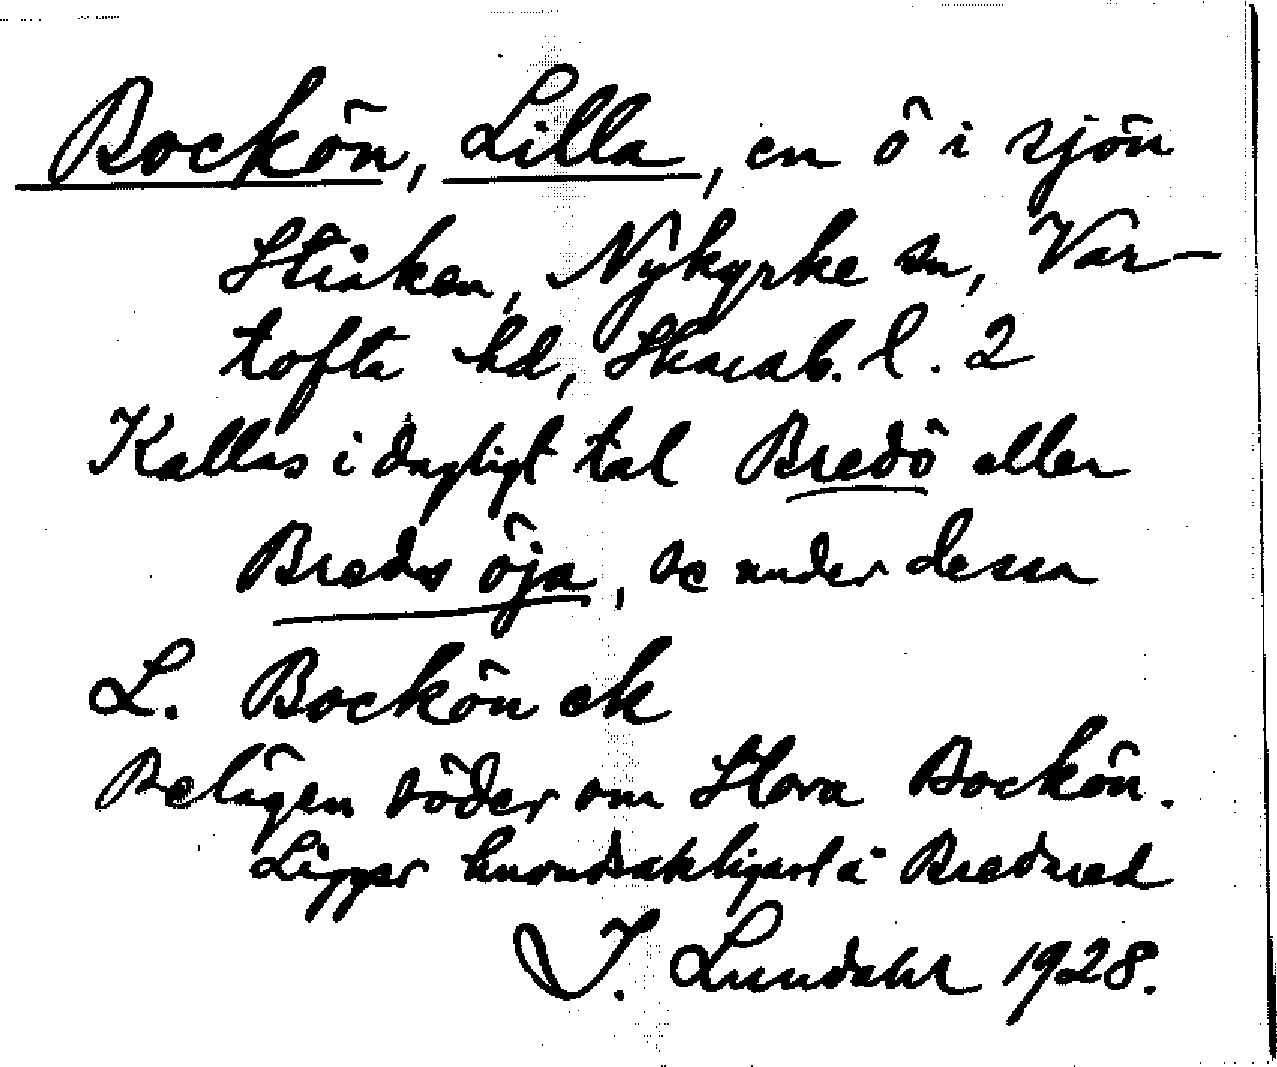 Bockön, Lilla, en ö i sjön
Stråken, Nykyrke sn, Var-
tofta hd, Skarab. l. 2
Kallas i dagligt tal Bredö eller
Breds öja, se under dessa
L. Bockön ek
Belägen söder om Stora Bockön.
Ligger huvudsakligast å Bredared
I. Lundahl 1928.